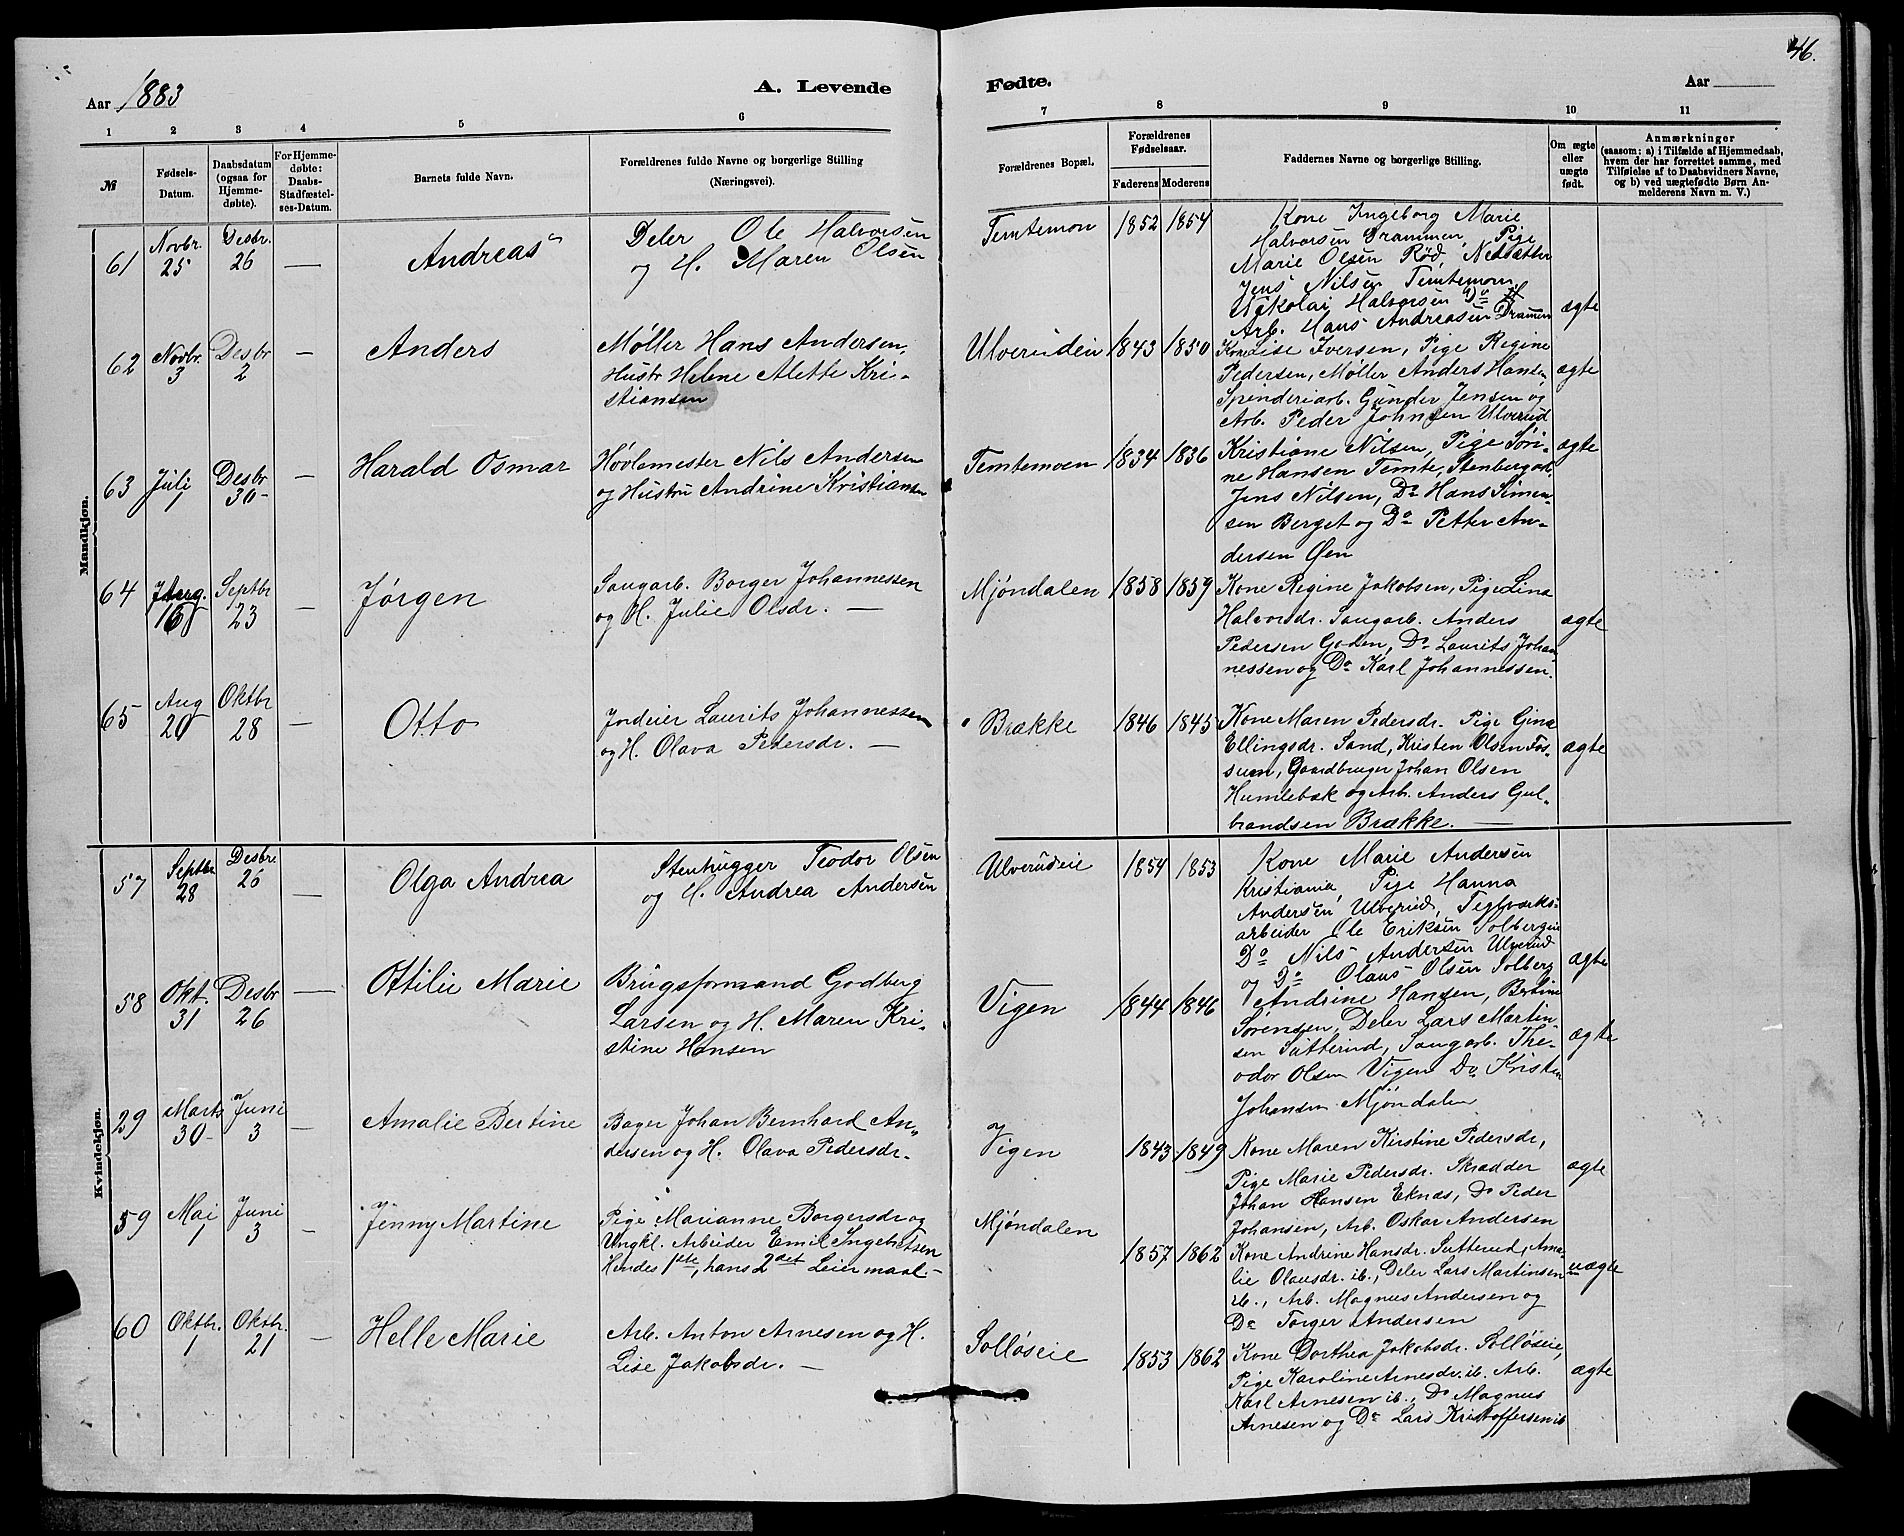 46.
Aar 1883
A. Levende
Fødte.
Aar
1 2 3 4 5 6
7 8 9 10 11
№
Fødsels-
Datum.
Daabsdatum
(ogsaa for
Hjemme-
døbte).
For Hjemme-
døbte:
Daabs-
Stadfæstel-
ses-Datum.
Barnets fulde Navn.
Forældrenes fulde Navne og borgerlige Stilling
(Næringsvei).
Forældrenes Bopæl.
Forældrenes
Fødselsaar.
Faderens Moderens
Faddernes Navne og borgerlige Stilling.
Om ægte
eller
uægte
født.
Anmærkninger
(saasom: a) i Tilfælde af Hjemmedaab,
hvem der har forrettet samme, med
Tilføielse af to Daabsvidners Navne,
og b) ved uægtefødte Børn An-
melderens Navn m. V.)
Mandkjøn.
61 Novbr. 25 Desbr. 26 — Andreas
Deler Ole Halvorsen
og H. Maren Olsen
Temtemon 1852 1854
Kone Ingeborg Marie
Halvorsen Drammen, Pige
Marie Olsen Rød, Nedsætter
Jens Nilsen Temtemoen
Nikolai Halvorsen Do
Arb. Hans Andreasen Drammen
ægte
62 Novbr. 3 Desbr 2 — Anders
Møller Hans Andersen,
Hustr Helene Alette Kri-
stiansen
Ulverudein 1843 1850
Kone Lise Iversen, Pige Regine
Pedersen, Møller Anders Hansen,
Spinderiarb. Gunder Jensen og
Arb. Peder Johnsen Ulverud
ægte
63 Juli 1 Desbr 30- — Harald Osmar
Høvlemester Nils Andersen
og Hustru Andrine Kristiansen
Temtemoen 1834 1836
Kristiane Nilsen, Pige Søri-
ne Hansen Temte, Stenbergarb.
Jens Nilsen, Do Hans Simen-
sen Berget og Do Petter An-
dersen Øen
ægte
64 16 Septbr 23 — Jørgen
Saugarb. Borger Johannessen
og H. Julie Olsdr. —
Mjøndalen 1858 1859
Kone Regine Jakobsen, Pige Lina
Halvorsdr. Saugarb. Anders
Pedersen Goden, Do Laurits Johan-
nessen og Do Karl Johannessen.
ægte
65 Aug 20 Oktbr 28 — Otto
Jordeier Laurits Johannessen
og H. Olava Pedersdr. —
Brække 1846 1845
Kone Maren Pedersdr. Pige Gina
Ellingsdr. Sand, Kristen Olsen Fos-
sum, Gaardbruger Johan Olsen
Humlebæk og Arb. Anders Gul-
brandsen Brække. —
ægte
Kvindekjøn.
57 Septbr 28 Desbre 26 — Olga Andrea
Stenhugger Teodor Olsen
og H. Andrea Andersen
Ulverudeie 1854 1853
Kone Marie Andersen
Kristiania, Pige Hanna
Andersen Ulverud, Teglværks-
arbeider Ole Eriksen Solbergeie
Do Nils Andersen Ulverud
og Do Olaus Olsen Solberg
ægte
58 Okt. 31 Desbr 26 — Ottilie Marie
Brugsformand Godberg
Larsen og H. Maren Kri-
stine Hansen
Vigen 1844 1846
Andrine Hansen, Bertine
Sørensen, Deler Lars Martin-
sen Sutterud, Saugarb. The-
odor Olsen Vigen Do Kristen
Johansen Mjøndalen
ægte
29 Marts 30- Juni 3 — Amalie Bertine
Bager Johan Bernhard An-
dersen og H. Olava Pedersdr.
Vigen 1843 1849
Kone Maren Kirstine Pedersdr,
Pige Marie Pedersdr. Skrædder
Johan Hansen Eknæs, Do Peder
Johansen, Arb. Oskar Andersen
ægte
59 Mai 1 Juni 3 — Jenny Martine
Pige Marianne Borgersdr og
Ungkl. Arbeider Emil Ingebretsen
Hendes 1ste, hans 2det Leiermaal. -
Mjøndalen 1857 1862
Kone Andrine Hansdr. Sutterud, Ama-
lie Olausdr. ib., Deler Lars Martinsen
ib., Arb. Magnus Andersen og
Do Torger Andersen
uægte
60 Oktbr. 1 Oktbr. 21 — Helle Marie
Arb. Anton Arnesen og H.
Lise Jakobsdr. —
Solløseie 1853 1862
Kone Dorthea Jakobsdr. Solløseie,
Pige Karoline Arnesdr. ib. Arb.
Karl Arnesen ib., Do Magnus
Arnesen og Do Lars Kristoffersen ib
ægte